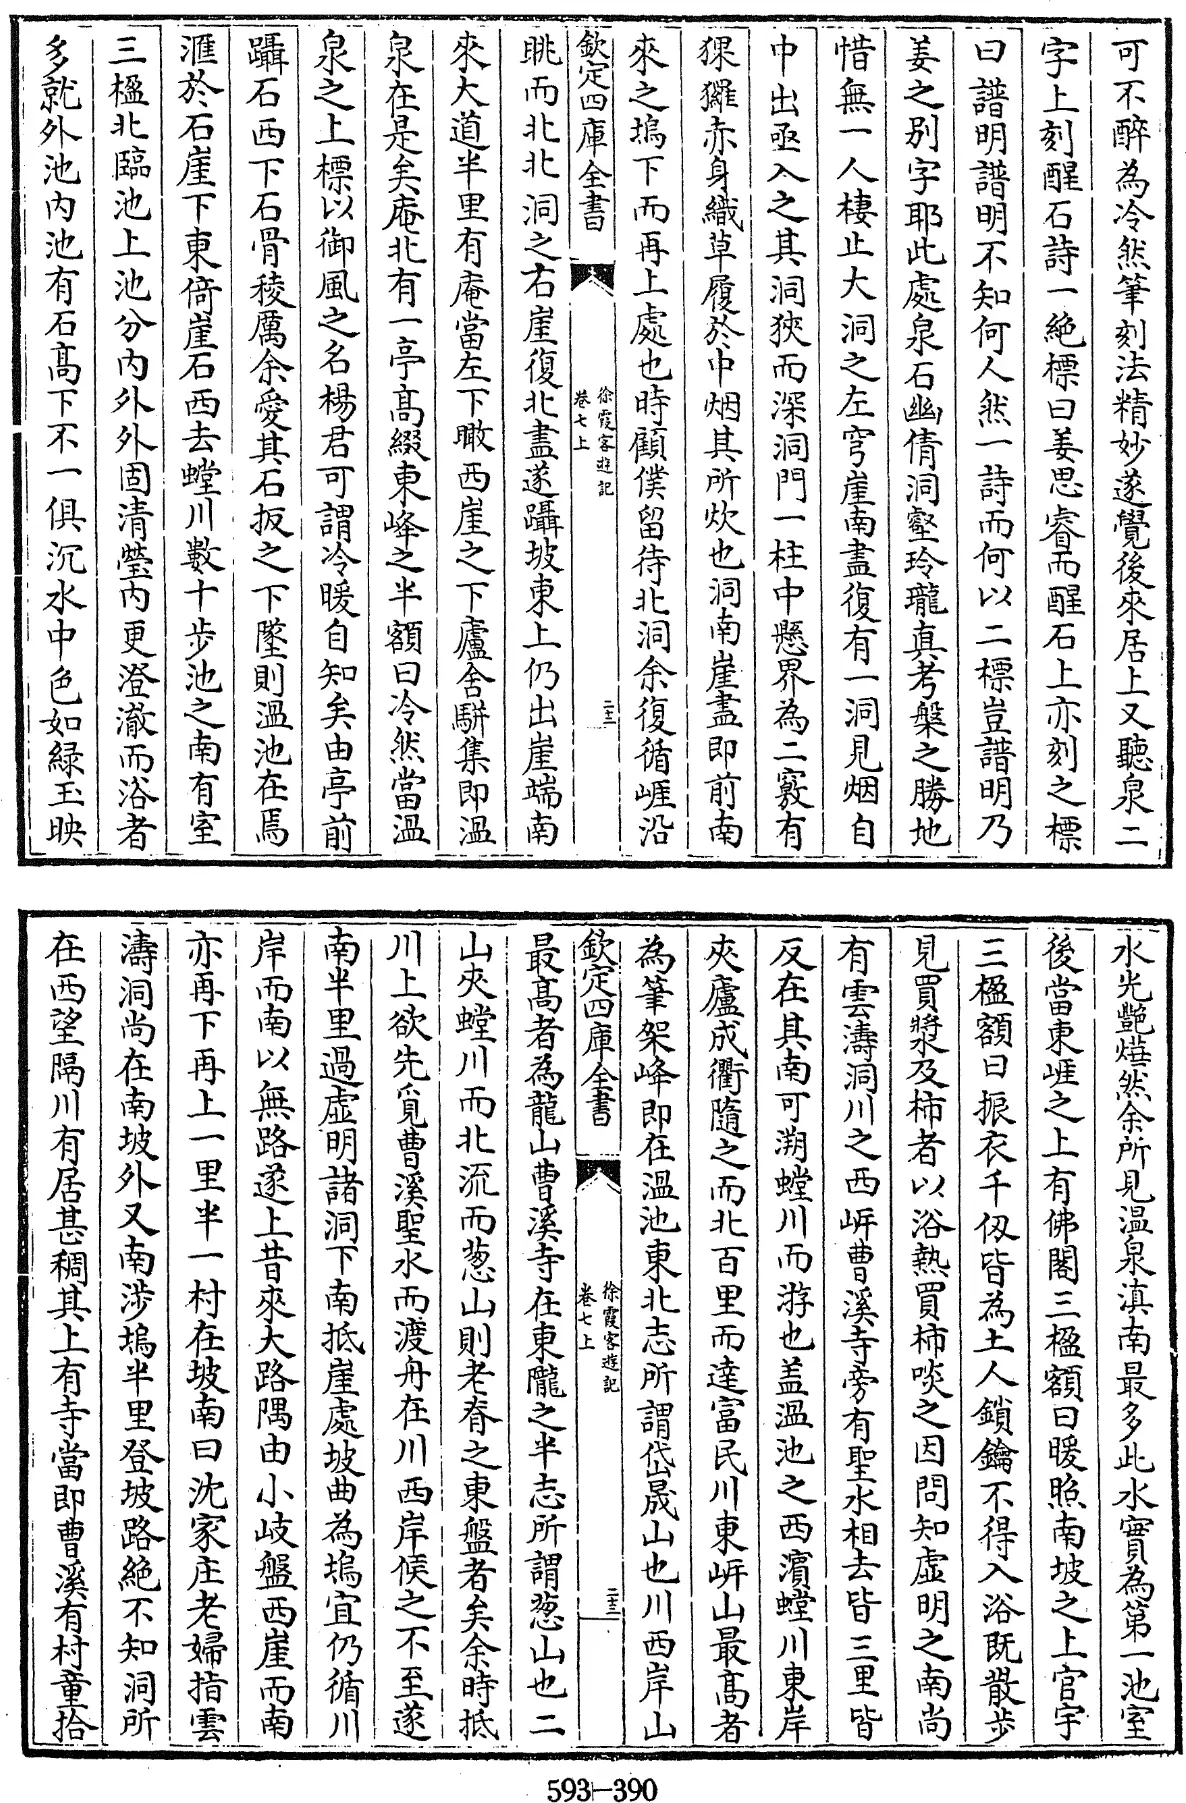 可不醉為冷然筆刻法精妙遂覺後來居上又聽泉二
字上刻醒石詩一絶標曰姜思睿而醒石上亦刻之標
曰譜明譜明不知何人然一詩而何以二標豈譜明乃
姜之别字耶此處泉石幽倩洞壑玲瓏真考槃之勝地
惜無一人棲止大洞之左穹崖南盡復有一洞見烟自
中出亟入之其洞狹而深洞門一柱中懸界為二竅有
猓玀赤身織草履於中烟其所炊也洞南崖盡即前南
來之塢下而再上處也時顧僕留待北洞余復循崕沿
欽定四庫全書
徐霞客遊記
卷七上
二十三
眺而北北洞之右崖復北盡遂躡坡東上仍出崖端南
來大道半里有庵當左下瞰西崖之下廬舍駢集即温
泉在是矣庵北有一亭高綴東峰之半額曰冷然當温
泉之上標以御風之名楊君可謂冷暖自知矣由亭前
躡石西下石骨稜厲余愛其石扳之下墜則温池在焉
滙於石崖下東倚崖石西去螳川數十步池之南有室
三楹北臨池上池分内外外固清瑩内更澄澈而浴者
多就外池内池有石高下不一俱沉水中色如緑玉映
水光艷煠然余所見温泉滇南最多此水實為第一池室
後當東崕之上有佛閣三楹額曰暖照南坡之上官宇
三楹額曰振衣千仭皆為土人鎖鑰不得入浴既散步
見買漿及柿者以浴熱買柿啖之因問知虚明之南尚
有雲濤洞川之西㟁曹溪寺旁有聖水相去皆三里皆
反在其南可溯螳川而游也盖温池之西濵螳川東岸
夾廬成衢隨之而北百里而達富民川東㟁山最高者
為筆架峰即在温池東北志所謂岱晟山也川西岸山
欽定四庫全書
徐霞客遊記
卷七上
二十三
最高者為龍山曹溪寺在東隴之半志所謂葱山也二
山夾螳川而北流而葱山則老脊之東盤者矣余時抵
川上欲先覓曹溪聖水而渡舟在川西岸候之不至遂
南半里過虚明諸洞下南抵崖處坡曲為塢宜仍循川
岸而南以無路遂上昔來大路隅由小岐盤西崖而南
亦再下再上一里半一村在坡南曰沈家庄老婦指雲
濤洞尚在南坡外又南涉塢半里登坡路絶不知洞所
在西望隔川有居甚稠其上有寺當即曹溪有村童拾
593-390